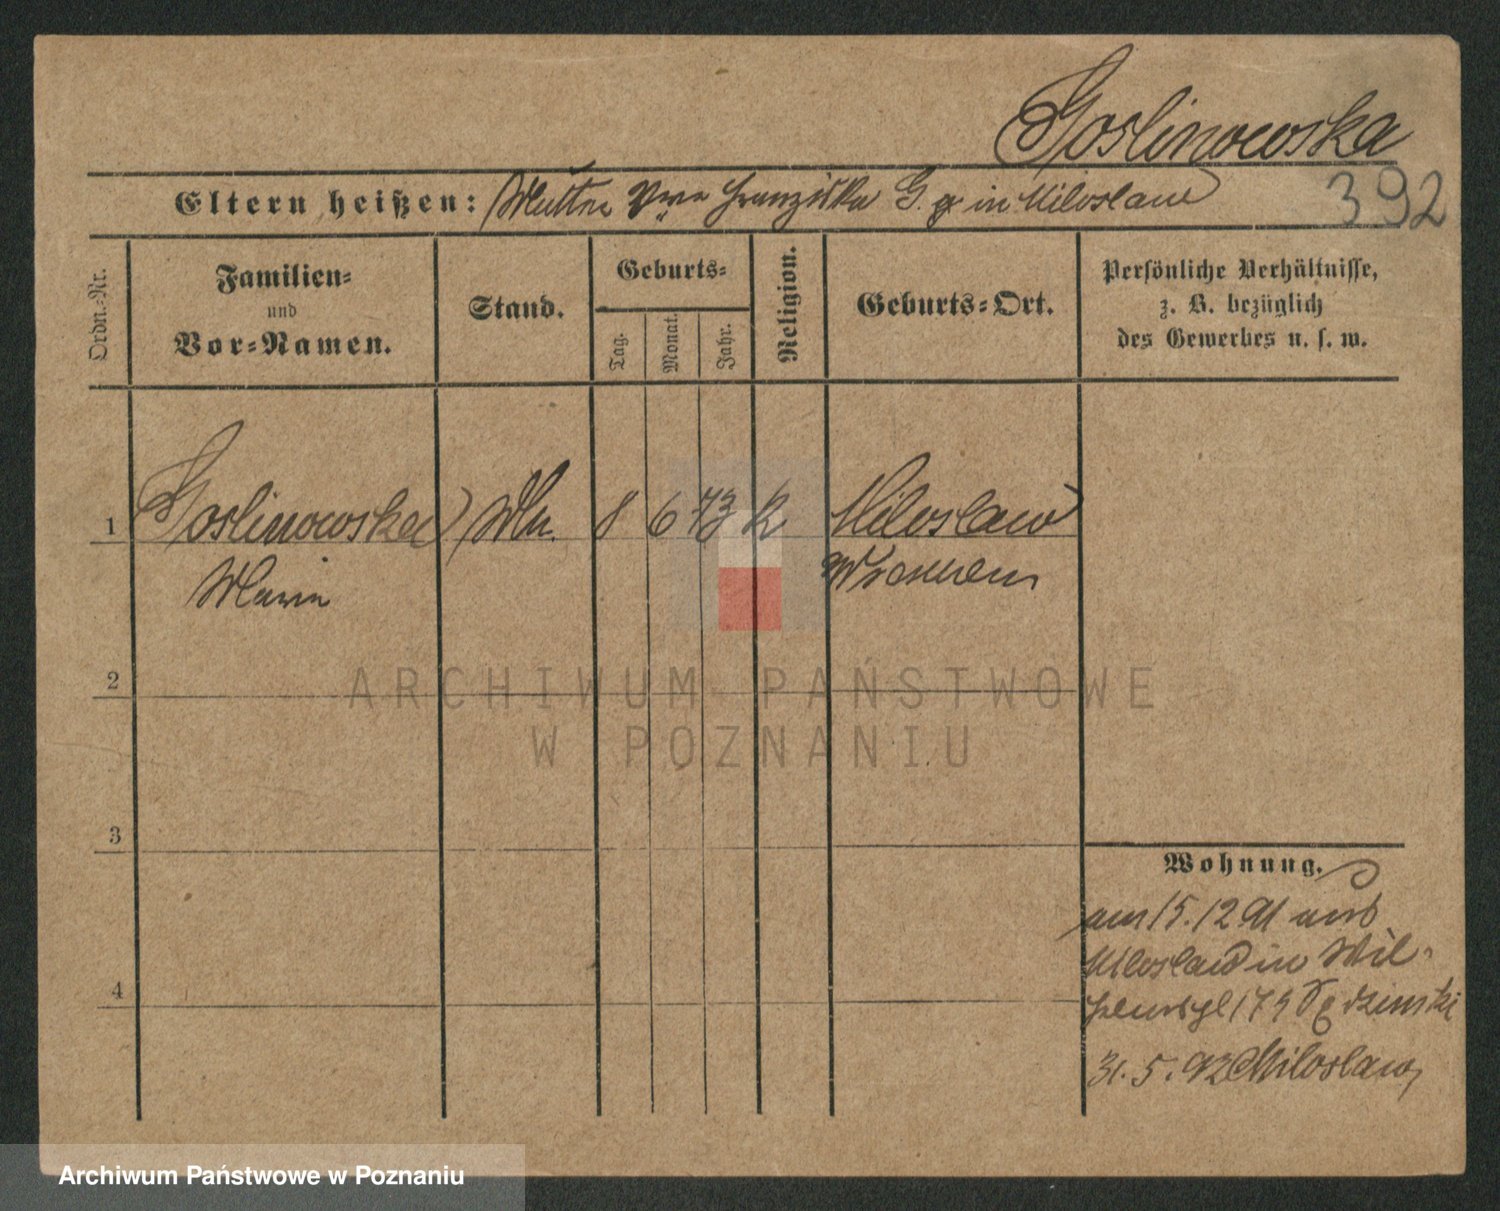 Goslinowska
Eltern heißen: Mutter Wwe Franziska G. g. in Miloslaw
392
Ordn.-Nr.
Familien-
und
Vor-Namen.
Stand.
Geburts-
Tag.
Monat.
Jahr.
Religion.
Geburts-Ort.
Persönliche Verhältnisse,
z. B. bezüglich
des Gewerbes u. s. w.
1 Goslinowska 8 6 73 k Miloslaw
Maria Wreschen
2
ARCHIWUM PAŃSTWOWE
W POZNANIU
3
Wohnung.
am 15. 12 91 aus
Miloslaw in Wil-
4
31. 5. 92 Miloslaw
Archiwum Państwowe w Poznaniu